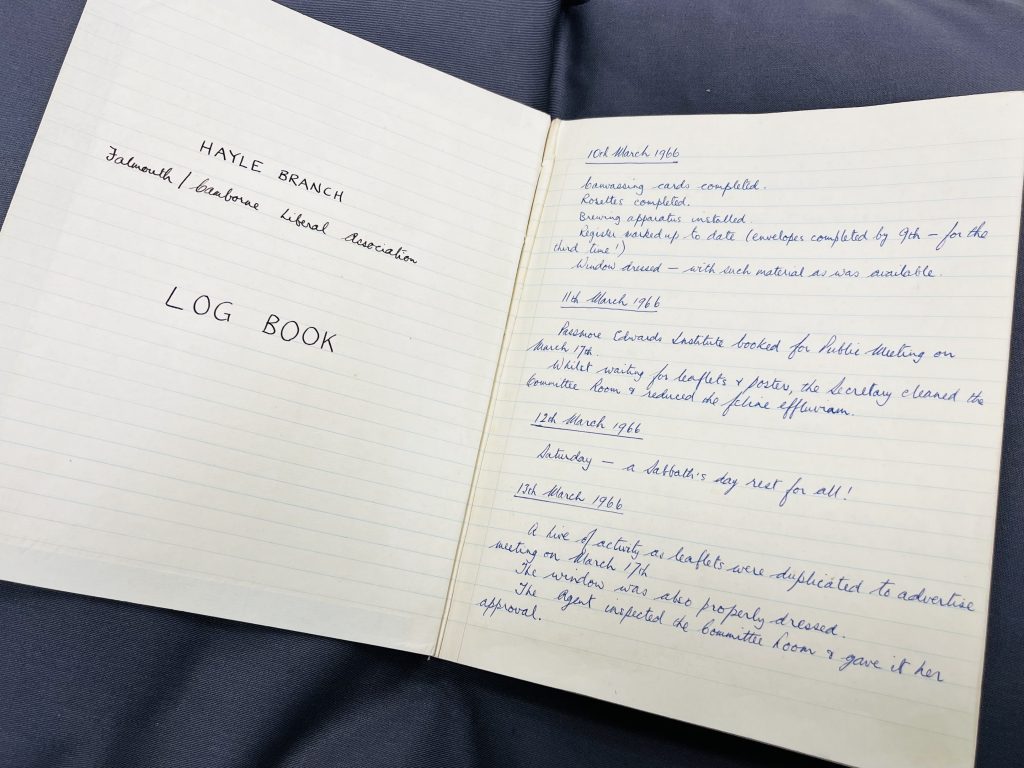 HAYLE BRANCH
Falmouth / Camborne Liberal Association
LOG BOOK
10th March 1966
Canvassing cards completed.
Rosettes completed.
Brewing apparatus installed.
Register marked up to date (envelopes completed by 9th – for the
third time!)
Window dressed – with such material as was available.
11th March 1966
Passmore Edwards Institute booked for Public Meeting on
March 17th.
Whilst waiting for leaflets & poster, the Secretary cleaned the
Committee Room & reduced the feline effluviam.
12th March 1966
Saturday – a Sabbath's day rest for all!
13th March 1966
A hive of activity as leaflets were duplicated to advertise
meeting on March 17th
The window was also properly dressed.
The Agent inspected the Committee Room & gave it her
approval.